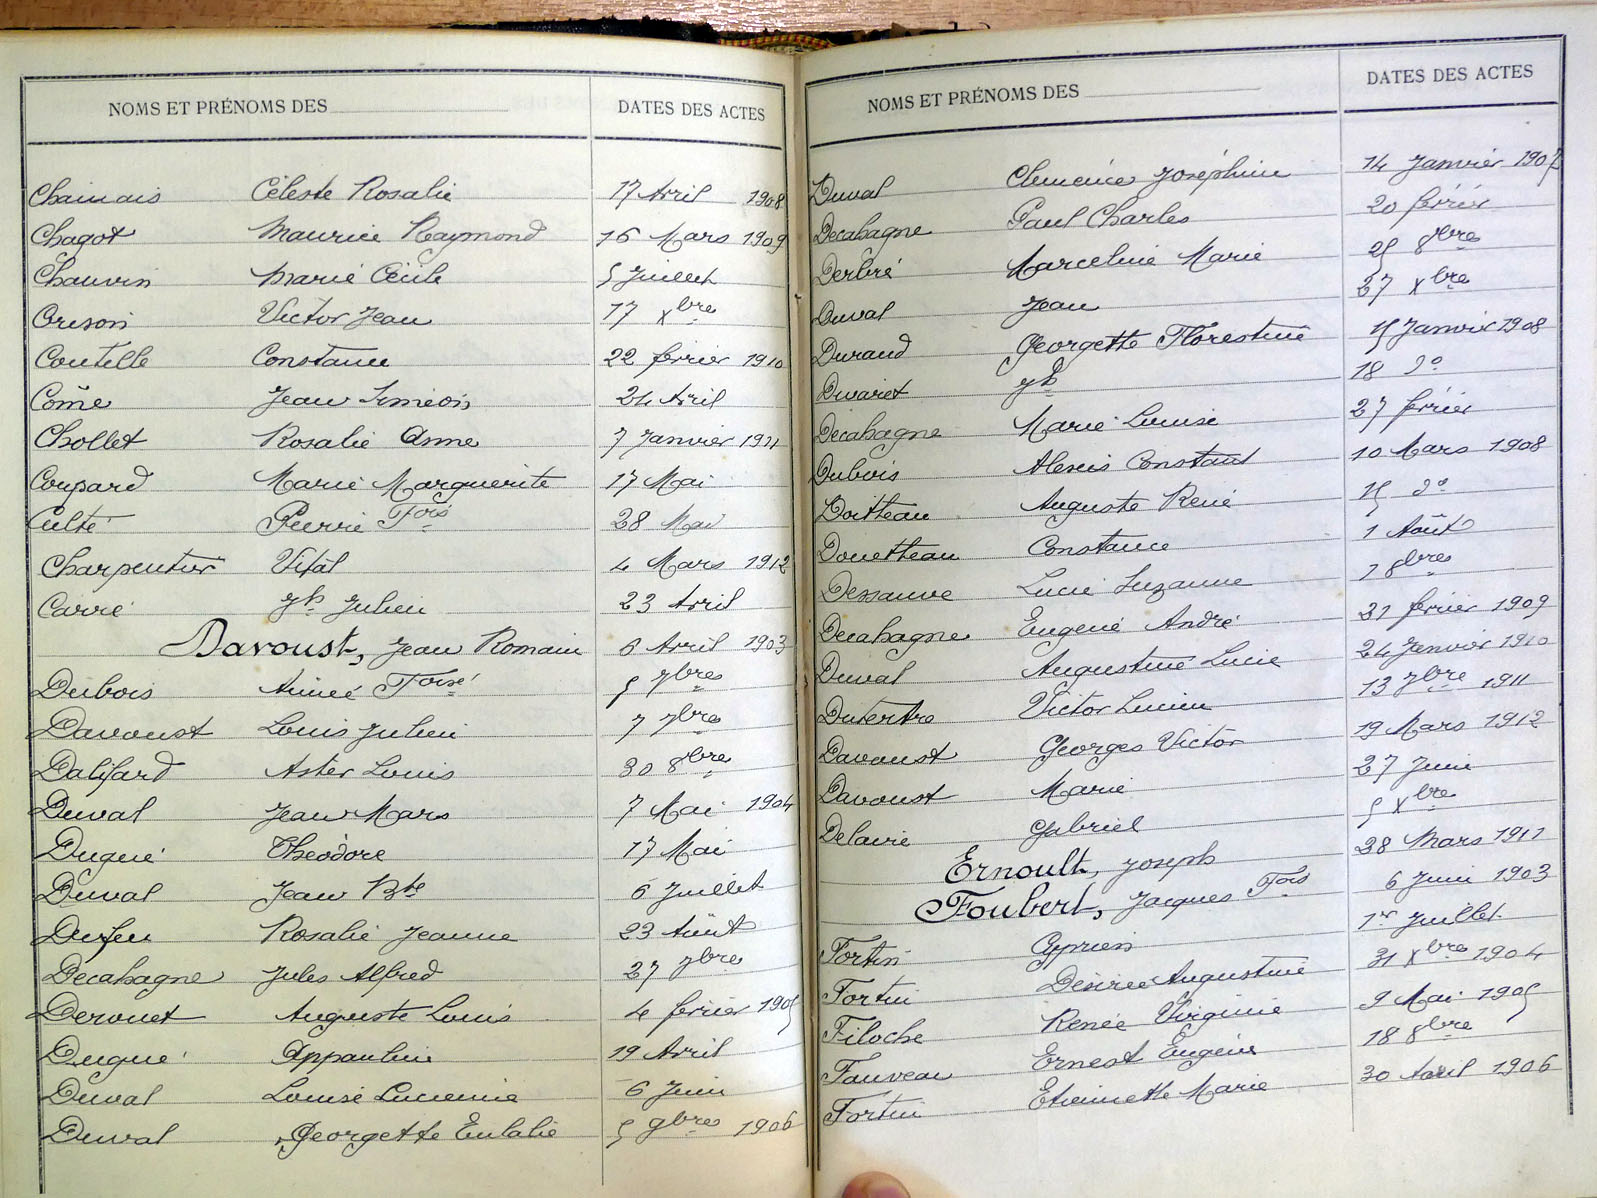 NOMS ET PRÉNOMS DES DATES DES ACTES
Chainais Céleste Rosalie 17 Avril 1908
Chagot Maurice Raymond 16 Mars 1909
Chauvin Marie Cécile 5 Juillet
Creson Victor Jean 17 Xbre
Coutelle Constance 22 février 1910
Côme Jean Siméon 24 Avril
Chollet Rosalie Anne 7 Janvier 1911
Coupard Marie Marguerite 17 Mai
Culté Pierre Fois 28 Mai
Charpentier Vital 4 Mars 1912
Carré Jh Julien 23 Avril
Davoust, Jean Romain 6 Avril 1903
Dubois Aimée Foise 5 7bres
Davoust Louis Julien 7 7bres
Dalifard Aster Louis 30 8bre
Duval Jean Mars 7 Mai 1904
Dugué Théodore 17 Mai
Duval Jean Bte 6 Juillet
Durfeu Rosalie Jeanne 23 Août
Decahagne Jules Alfred 27 7bre
Derouet Auguste Louis 4 février 1905
Dugué Appauline 19 Avril
Duval Louise Lucienne 6 Juin
Duval Georgette Eulalie 5 9bres 1906
NOMS ET PRÉNOMS DES DATES DES ACTES
Duval Clémence Joséphine 14 Janvier 1907
Decahagne Paul Charles 20 février
Derbré Marceline Marie 25 8bres
Duval Jean 27 Xbre
Durand Georgette Florestine 15 Janvier 1908
Duvaret Jh 18 do
Decahagne Marie Louise 27 février
Dubois Alexis Constant 10 Mars 1908
Doitteau Auguste René 15 do
Douetteau Constance 1 Août
Dessauve Lucie Suzanne 7 8bres
Decahagne Eugène André 21 février 1909
Duval Augustine Lucie 24 Janvier 1910
Dutertre Victor Lucien 13 7bre 1911
Davoust Georges Victor 19 Mars 1912
Davoust Marie 27 Juin
Delavie Gabriel 5 Xbre
Ernoult, Joseph 28 Mars 1911
Foubert, Jacques Fois 6 Juin 1903
Fortin Cyprien 1er Juillet
Fortin Désirée Augustine 31 Xbre 1904
Filoche Renée Virginie 9 Mai 1905
Fauveau Ernest Eugène 18 8bre
Fortin Etiennette Marie 30 Avril 1906